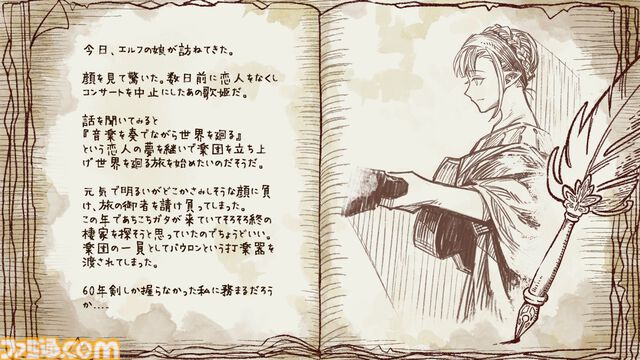 今日、エルフの娘が訪ねてきた。
顔を見て驚いた。数日前に恋人をなくし
コンサートを中止にしたあの歌姫だ。
話を聞いてみると
『音楽を奏でながら世界を廻る』
という恋人の夢を継いで楽団を立ち上
げ世界を廻る旅を始めたいのだそうだ。
元気で明るいがどこかさみしそうな顔に負
け、旅の御者を請け負ってしまった。
この年であちこちガタが来ていてそろそろ終の
棲家を探そうと思っていたのでちょうどいい。
楽団の一員としてバウロンという打楽器を
渡されてしまった。
60年剣しか握らなかった私に務まるだろう
か....
ファミ通.com